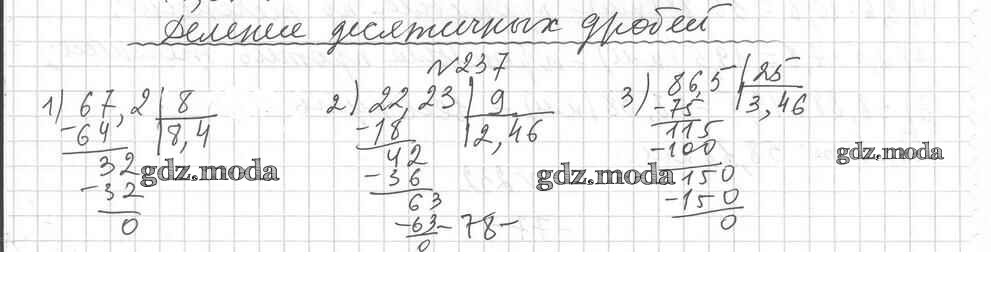 Деление десятичных дробей
№237
1) 67,2 | 8
-64 | 8,4
32
-32
0
2) 22,23 | 9
-18 | 2,46
42
-36
63
-63
0
3) 86,5 | 25
-75 | 3,46
115
-100
150
-150
0
-78-
gdz.moda
gdz.moda
gdz.moda